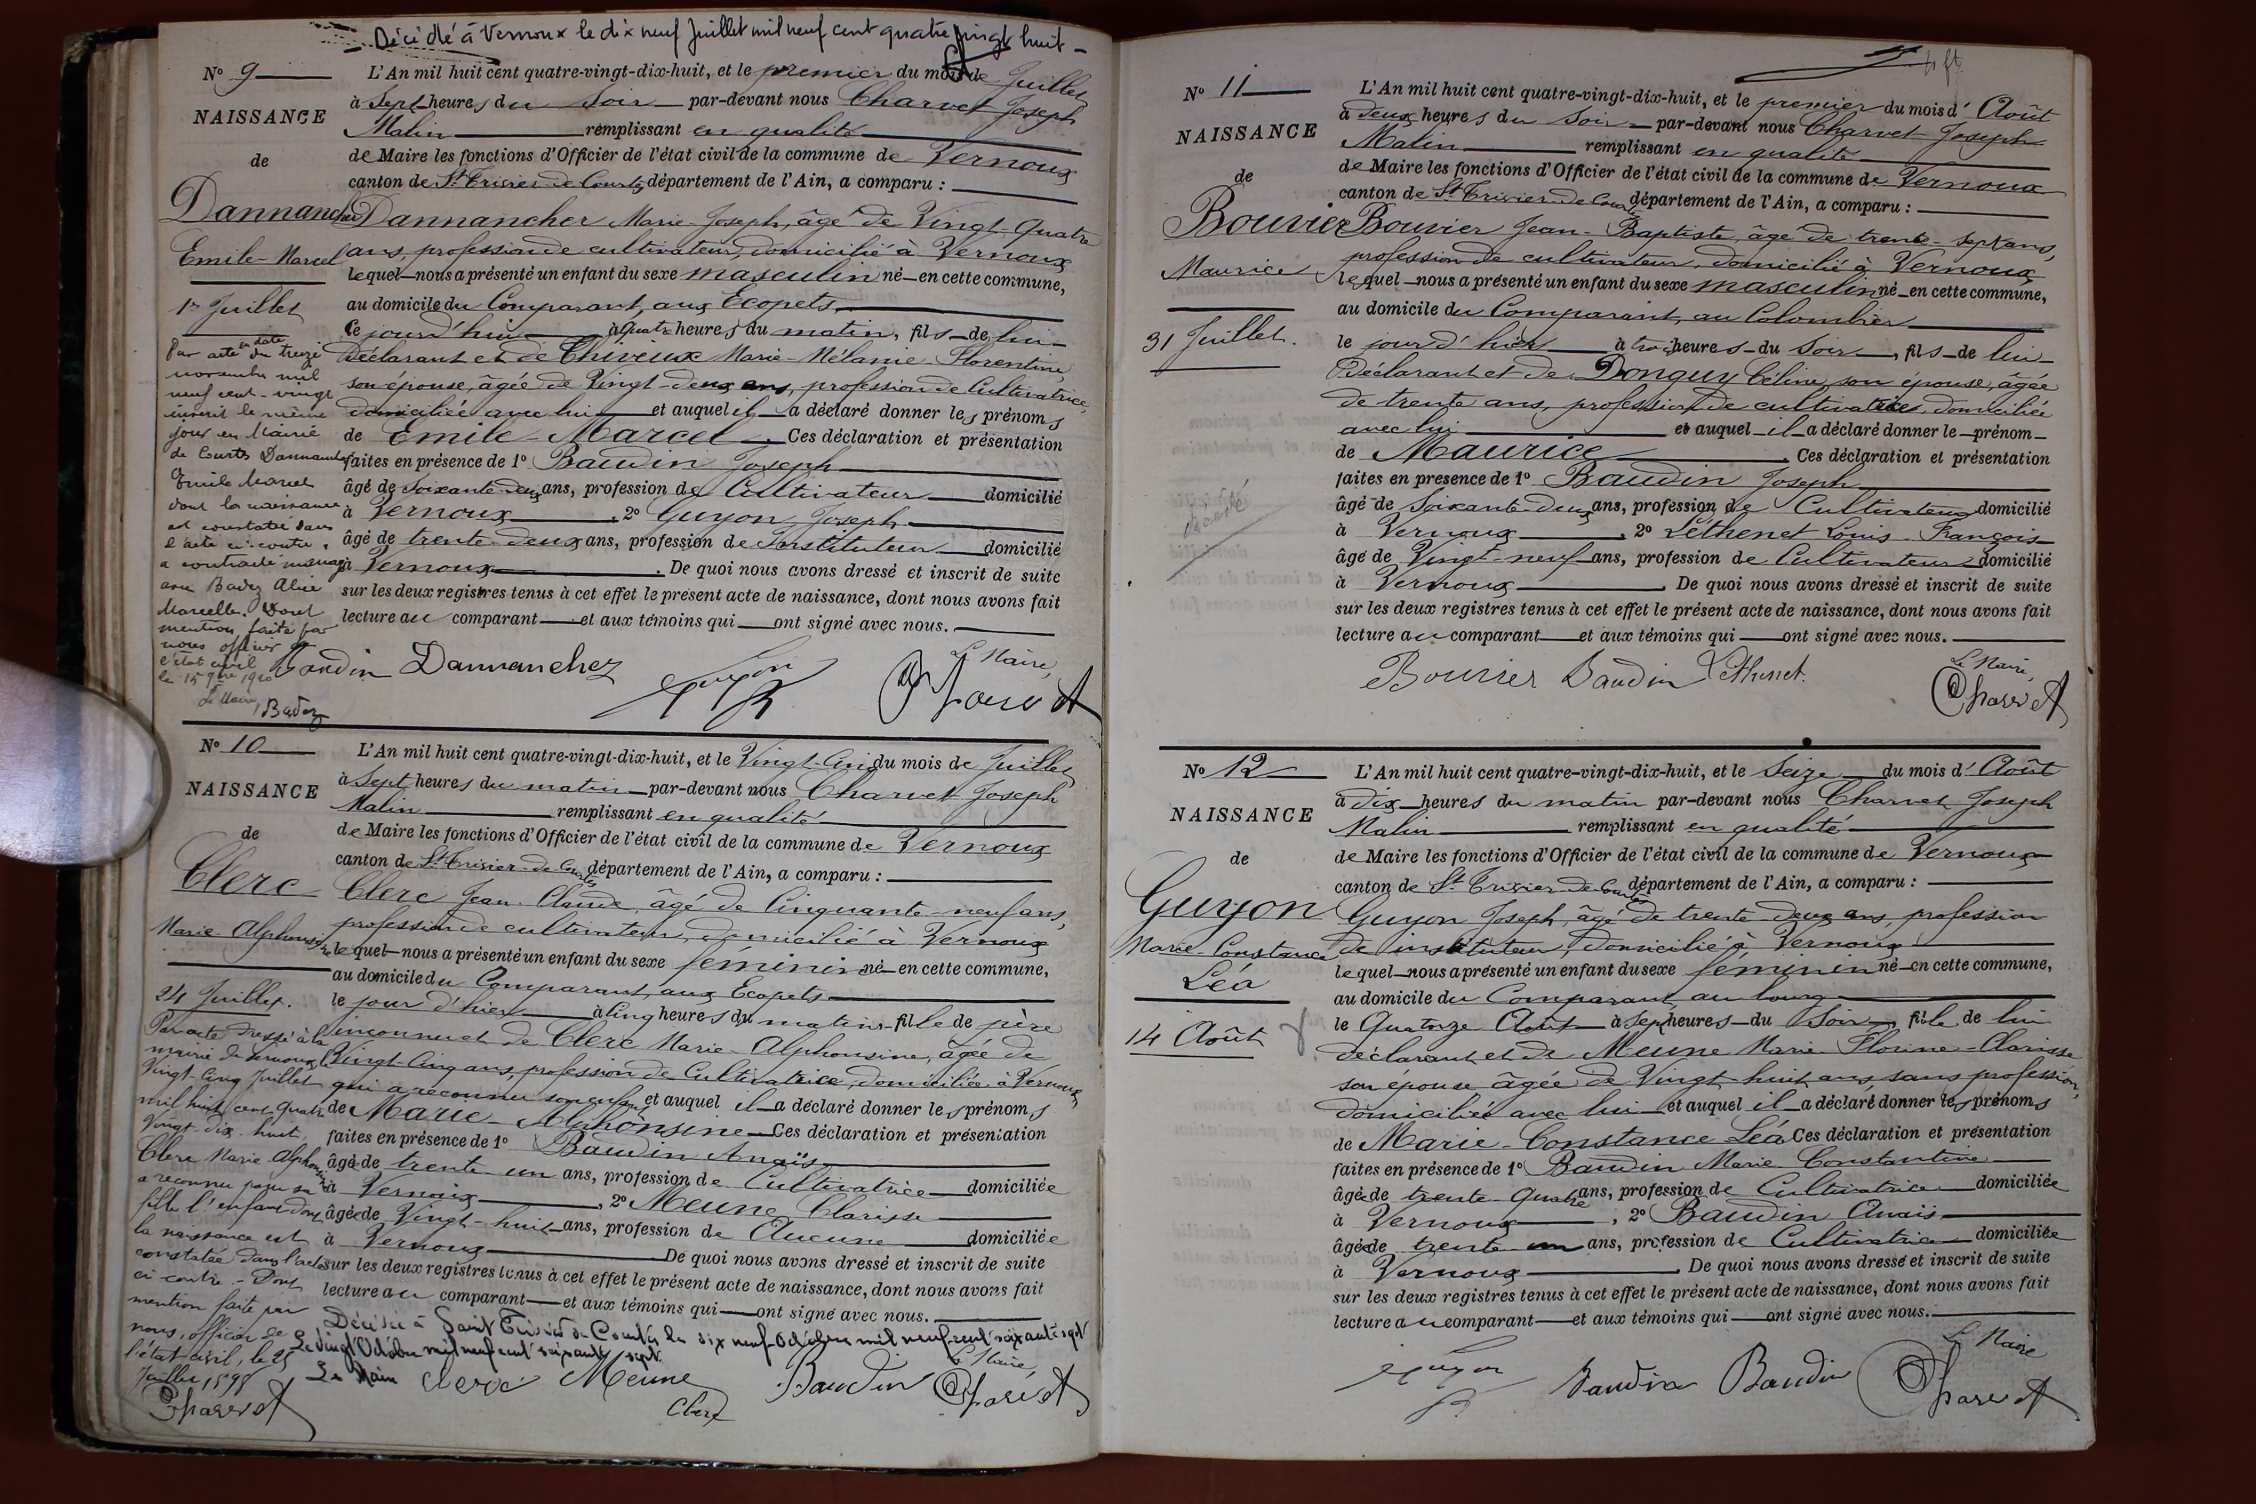 Décédé à Vernoux le dix neuf Juillet mil neuf cent quatre vingt huit -
N° 9
NAISSANCE
de
Dannancher
Emile-Marcel
1er Juillet
Par acte en date du treize
novembre mil
neuf cent-vingt
inscrit le même
jour en Mairie
de Courtes Dannancher
Emile Marcel
dont la naissance
est constatée dans
l'acte ci-contre,
a contracté mariage
avec Badez Alice
Marcelle. Dont
mention faite par
nous officier de
l'état civil
le 15 9bre 1920
Le Maire,
Badez
L'An mil huit cent quatre-vingt-dix-huit, et le premier du mois de Juillet
à Sept heures du Soir par-devant nous Charvet Joseph
Malin remplissant en qualité
de Maire les fonctions d'Officier de l'état civil de la commune de Vernoux
canton de St Trivier de Courtes département de l'Ain, a comparu :
Dannancher Marie-Joseph, âgé de Vingt-Quatre
ans, profession de cultivateur, domicilié à Vernoux
lequel nous a présenté un enfant du sexe masculin né en cette commune,
au domicile du Comparant, aux Ecopets
ce jourd'hui à quatre heures du matin, fils de lui
déclarant et de Thiveux Marie-Mélanie-Florentine
son épouse, âgée de Vingt-deux ans, profession de Cultivatrice,
domiciliée avec lui et auquel il a déclaré donner les prénoms
de Emile-Marcel. Ces déclaration et présentation
faites en présence de 1° Baudin Joseph
âgé de soixante-deux ans, profession de Cultivateur domicilié
à Vernoux, 2° Guyon Joseph
âgé de trente-deux ans, profession de Instituteur domicilié
à Vernoux. De quoi nous avons dressé et inscrit de suite
sur les deux registres tenus à cet effet le présent acte de naissance, dont nous avons fait
lecture au comparant et aux témoins qui ont signé avec nous.
Le Maire,
Baudin Dannancher Guyon Charvet
N° 10
NAISSANCE
de
Clerc
Marie-Alphonsine
24 Juillet.
Par acte dressé à la
mairie de Vernoux le
Vingt-Cinq Juillet
mil huit cent quatre
Vingt-dix-huit,
Clerc Marie-Alphonsine
a reconnu pour sa
fille l'enfant dont
la naissance est
constatée dans l'acte
ci-contre - Dont
mention faite par
nous, officier de
l'état civil, le 25
Juillet 1898
Charvet
L'An mil huit cent quatre-vingt-dix-huit, et le Vingt-Cinq du mois de Juillet
à Sept heures du matin par-devant nous Charvet Joseph
Malin remplissant en qualité
de Maire les fonctions d'Officier de l'état civil de la commune de Vernoux
canton de St Trivier-de-Courtes département de l'Ain, a comparu :
Clerc Jean-Claude, âgé de Cinquante-neuf ans,
profession de cultivateur, domicilié à Vernoux
lequel nous a présenté un enfant du sexe féminin né en cette commune,
au domicile du Comparant, aux Ecopets
le jour d'hier à Cinq heures du matin, fille de père
inconnu et de Clerc Marie-Alphonsine, âgée de
Vingt-Cinq ans, profession de Cultivatrice, domiciliée à Vernoux,
qui a reconnu son enfant et auquel il a déclaré donner les prénoms
de Marie-Alphonsine Ces déclaration et présentation
faites en présence de 1° Baudin Anaïs
âgée de trente un ans, profession de Cultivatrice domiciliée
à Vernoux, 2° Meune Clarisse
âgée de Vingt-huit ans, profession de Aucune domiciliée
à Vernoux De quoi nous avons dressé et inscrit de suite
sur les deux registres tenus à cet effet le présent acte de naissance, dont nous avons fait
lecture au comparant et aux témoins qui ont signé avec nous.
Décédée à Saint Trivier de Courtes le dix neuf Octobre mil neuf cent soixante sept
Le vingt Octobre mil neuf cent soixante sept.
Le Maire
Le Maire,
Clerc Meune Baudin Charvet
Clerc
N° 11
NAISSANCE
de
Bouvier
Maurice
31 Juillet.
L'An mil huit cent quatre-vingt-dix-huit, et le premier du mois d'Août
à deux heures du Soir par-devant nous Charvet Joseph
Malin remplissant en qualité
de Maire les fonctions d'Officier de l'état civil de la commune de Vernoux
canton de St Trivier-de-Courtes département de l'Ain, a comparu :
Bouvier Jean-Baptiste, âgé de trente-sept ans,
profession de cultivateur, domicilié à Vernoux
lequel nous a présenté un enfant du sexe masculin né en cette commune,
au domicile du Comparant, au Colombier
le jour d'hier à trois heures du Soir, fils de lui
déclarant et de Donguy Céline, son épouse, âgée
de trente ans, profession de cultivatrice, domiciliée
avec lui et auquel il a déclaré donner le prénom
de Maurice. Ces déclaration et présentation
faites en présence de 1° Baudin Joseph
âgé de Soixante-deux ans, profession de Cultivateur domicilié
à Vernoux, 2° Lethenet Louis-François
âgé de Vingt-neuf ans, profession de Cultivateur domicilié
à Vernoux De quoi nous avons dressé et inscrit de suite
sur les deux registres tenus à cet effet le présent acte de naissance, dont nous avons fait
lecture au comparant et aux témoins qui ont signé avec nous.
Le Maire,
Bouvier Baudin Lethenet. Charvet
N° 12
NAISSANCE
de
Guyon
Marie-Constance
Léa
14 Août
L'An mil huit cent quatre-vingt-dix-huit, et le Seize du mois d'Août
à dix heures du matin par-devant nous Charvet Joseph
Malin remplissant en qualité
de Maire les fonctions d'Officier de l'état civil de la commune de Vernoux
canton de St Trivier-de-Courtes département de l'Ain, a comparu :
Guyon Joseph, âgé de trente-deux ans, profession
de instituteur, domicilié à Vernoux
lequel nous a présenté un enfant du sexe féminin né en cette commune,
au domicile du Comparant, au bourg
le Quatorze Août à Sept heures du Soir, fille de lui
déclarant et de Meune Marie-Florine-Clarisse
son épouse âgée de Vingt-huit ans, sans profession,
domiciliée avec lui et auquel il a déclaré donner les prénoms
de Marie-Constance Léa Ces déclaration et présentation
faites en présence de 1° Baudin Marie Constantine
âgée de trente-quatre ans, profession de Cultivatrice domiciliée
à Vernoux, 2° Baudin Anaïs
âgée de trente un ans, profession de Cultivatrice domiciliée
à Vernoux. De quoi nous avons dressé et inscrit de suite
sur les deux registres tenus à cet effet le présent acte de naissance, dont nous avons fait
lecture au comparant et aux témoins qui ont signé avec nous.
Le Maire
Guyon Baudin Baudin Charvet